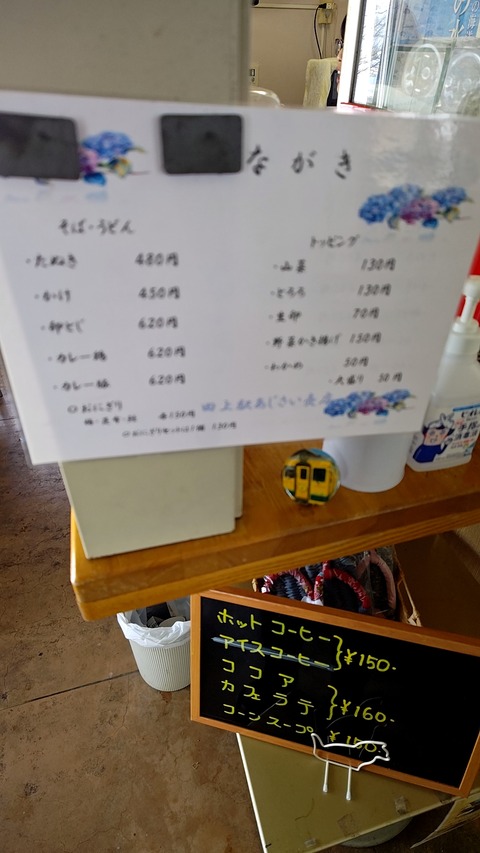 ながき
そば・うどん
・たぬき 480円
・かけ 450円
・卵とじ 620円
・カレー鶏 620円
・カレー 620円
○おにぎり
トッピング
・山菜 130円
・とろろ 130円
・生卵 70円
・野菜かき揚げ 150円
・わかめ 50円
・大盛り 50円
田上駅あじさい売店
ホットコーヒー
アイスコーヒー
¥150.
ココア
カフェラテ
¥160.
コーンスープ ¥150.